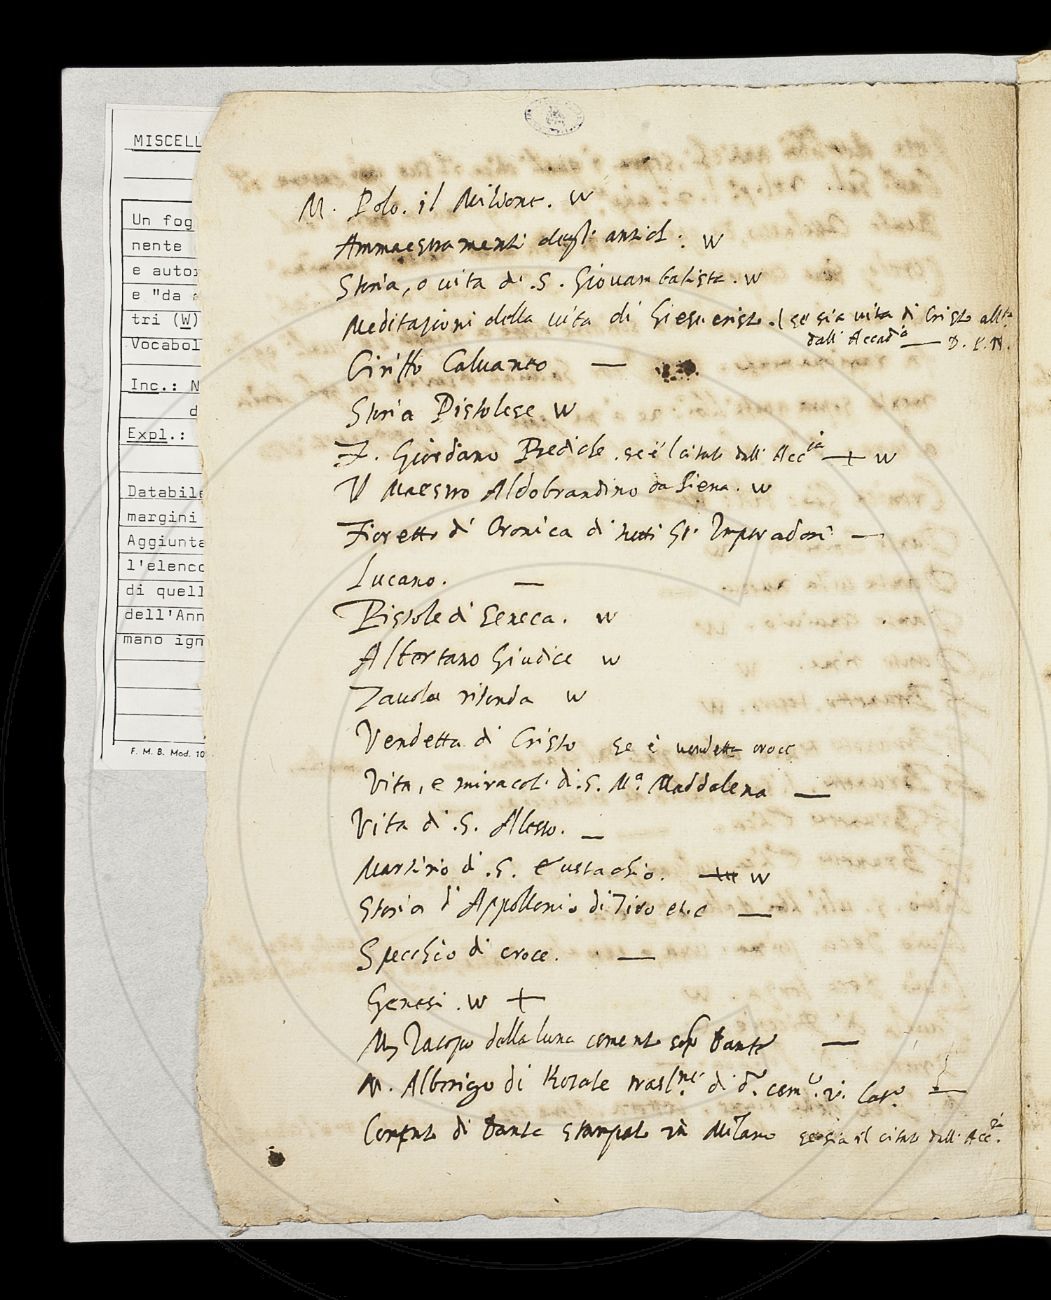 MISCELL
Un fog
nente
e autor
e "da
tri (W)
Vocabol
Inc.: N
d
Expl.:
Databile
margini
Aggiunta
l'elenco
di quell
dell'Ann
mano ign
F. M. B. Mod. 10
M. Polo. il Milione. W
Ammaestramenti degli antichi. W
Storia, o vita di .S. Giovambatista. W
Meditazioni della vita di Giesucristo. (se sia vita di Cristo
dall' Accad.ia —
Ciriffo Calvaneo. —
Storia Pistolese W
F. Giordano Prediche. se è l citato dall' Acc.ia + W
Il Maestro Aldobrandino da Siena. W
Fioretto di Cronica di tutti Gl' Imperadori —
Lucano. —
Pistole di Seneca. W
Albertano Giudice W
Tavola ritonda W
Vendetta di Cristo se è vendetta croce
Vita, e miracoli di .S. M.a Maddalena —
Vita di .S. Alesso. —
Martirio di .S. Eustachio. W
Storia d'Appollonio di Tiro etc —
Specchio di croce. —
Genesi . W +
Jacopo della Luna coment. sop. Dante —
M. Alberigo di Rosate
Coment. di Dante stampato in Milano se sia il citato dall' Acc.ia